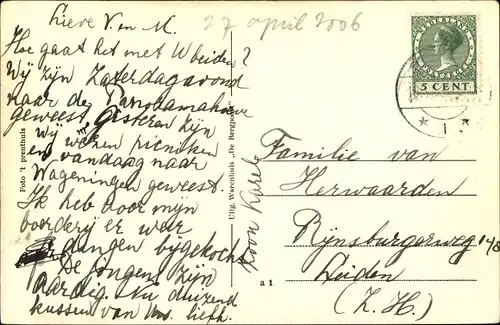 27 april 2006
Lieve V. en M.
Hoe gaat het met U beiden?
Wij zijn Zaterdagavond
naar de Panoramahoeve
geweest, gisteren zijn
wij wezen picnicken
en vandaag naar
Wageningen geweest.
Ik heb voor mijn
boerderij er weer
dingen bijgekocht
De jongens zijn
aardig. Nu duizend
kussen van Uw liefh.
Koon Karel
Foto 't prenthuis
Uitg. Warenhuis „De Bergpoort"
a 1
NEDERLAND
5 CENT
* 1 *
Familie van
Herwaarden
Rijnsburgerweg 148
Leiden
(Z. H.)